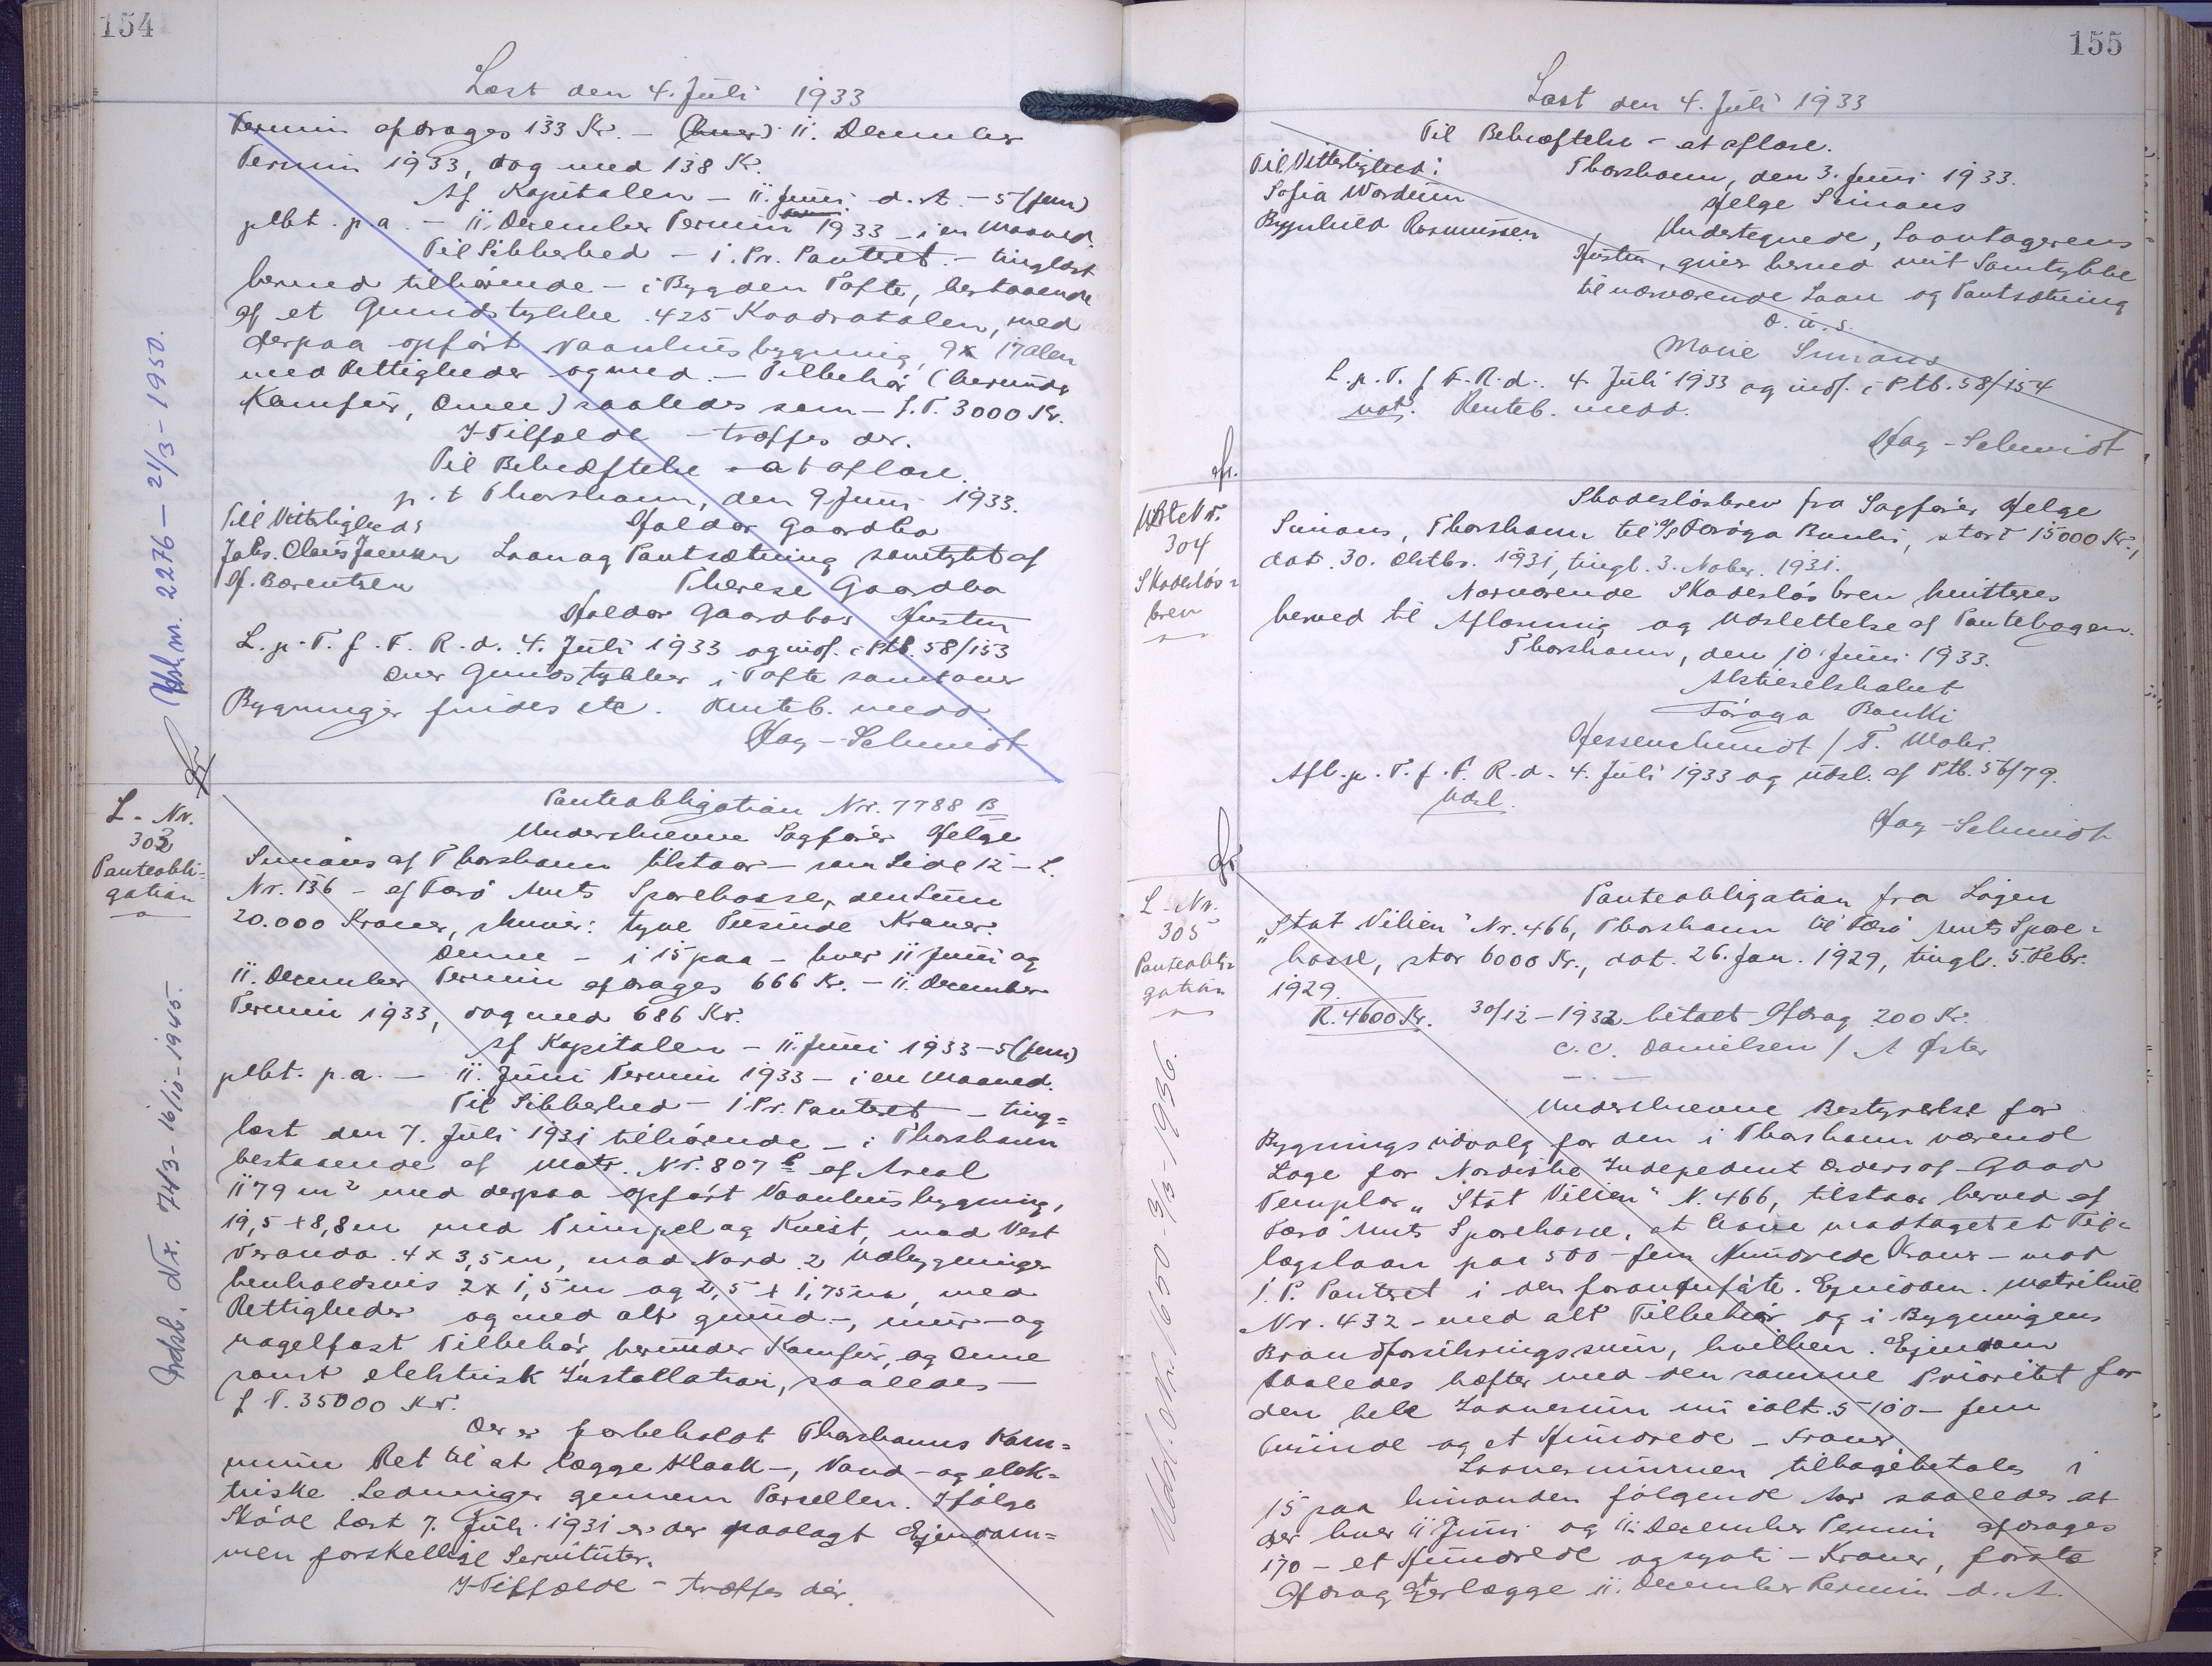 154
Læst den 4. Juli 1933
Termin afdrages 133 Kr. – (hver) 11. December
Termin 1933, dog med 138 Kr.
Af Kapitalen – 11. Juni d. A. – 5 (fem)
pCt. p.a. – 11. December Termin 1933 – i en Maaned.
Til Sikkerhed – 1. Pr. Panteret – tinglæst
herved tilhørende – i Bygden Tofte, bestaaende
af et Grundstykke 425 Kvadratalen, med
derpaa opført Vaaningshusbygning, 9 x 17 Alen
med Rettigheder og med – Tilbehør (herunder
Komfur, Ovne) saaledes som – f. T. 3000 Kr.
I Tilfælde – træffes der.
Til Bekræftelse – at aflæse.
p. t. Thorshavn, den 9. Juni 1933.
Til Vitterlighed: Haldor Gaardbo
Jobs. Claus Joensen Laan og Pantsætning samtykt af
H. Bærentsen Therese Gaardbo
Haldor Gaardbos Hustru
L. p. T. f. F. R. d. 4. Juli 1933 og indf. i Ptb. 58/153
Over Grundstykker i Tofte samt over
Bygninger findes etc. Renteb. medd
Hag-Schmidt
2276 – 21/3 – 1950.
L. Nr.
303
Panteobli=
gation
Panteobligation Nr. 7788 B
Underskrevne Sagfører Helge
Simons af Thorshavn tilstaar – som Side 12 – L.
Nr. 136 – af Færø Amts Sparekasse, den Sum
20.000 Kroner, skriver: tyve Tusinde Kroner.
Denne – i 15 paa – hver 11 Juni og
11. December Termin afdrages 666 Kr. – 11. December
Termin 1933, dog med 686 Kr.
Af Kapitalen – 11. Juni 1933 – 5 (fem)
pCt. p.a. – 11. Juni Termin 1933 – i en Maaned.
Til Sikkerhed – 1 Pr. Panteret – ting=
læst den 7. Juli 1931 tilhørende – i Thorshavn
bestaaende af Matr. Nr. 807 b af Areal
1179 m² med derpaa opført Vaaningshusbygning,
19,5 x 8,8 m med Pimpel og Kvist, mod Vest
Veranda 4 x 3,5 m, mod Nord 2 Udbygninger
henholdsvis 2 x 1,5 m og 2,5 x 1,75 m, med
Rettigheder og med alt grund-, mur- og
nagelfast Tilbehør, herunder Komfur, og Ovne
samt elektrisk Installation, saaledes –
f. T. 35000 Kr.
Der er forbeholdt Thorshavns Kom=
mune Ret til at lægge Kloak-, Vand- og elek=
triske Ledninger gennem Parcellen. Ifølge
Skøde læst 7. Juli 1931 er der paalagt Ejendom=
men forskellige Servituter.
I Tilfælde – træffes der.
Nr. 743 – 16/10 – 1945.
155
Læst den 4. Juli 1933
Til Bekræftelse – at aflæse.
Til Vitterlighed: Thorshavn, den 3. Juni 1933.
Sofia Wardum Helge Simons
Brynhild Rasmussen Undertegnede, Laantagerens
Hustru, giver herved mit Samtykke
til nærværende Laan og Pantsætning
D. u. s.
Marie Simons
L. p. T. f F. R. d. 4. Juli 1933 og indf. i Ptb. 58/154
not. Renteb. medd.
Hag-Schmidt
Nr.
304
Skadesløs=
brev
Skadesløsbrev fra Sagfører Helge
Simons, Thorshavn til A/S Føroya Banki, stort 15000 Kr.,
dat. 30. Oktbr. 1931, tingl. 3. Nobr. 1931.
Nærværende Skadesløsbrev kvitteres
herved til Aflæsning og Udslettelse af Pantebogen.
Thorshavn, den 10 Juni 1933.
Aktieselskabet
Føroya Banki
Hessenschmidt / T. Mohr.
Afl. p. T. f. F. R. d. 4. Juli 1933 og udsl. af Ptb. 56/79.
Udsl.
Hag-Schmidt
L. Nr.
305
Panteobli=
gation
Panteobligation fra Logen
„Stat Vilien" Nr. 466, Thorshavn til Færø Amts Spare=
kasse, stor 6000 Kr., dat. 26. Jan. 1929, tingl. 5. Febr.
1929.
R. 4600 Kr. 30/12 – 1932 betalt Afdrag 200 Kr.
C. C. Danielsen / A Øster
Underskrevne Bestyrelse for
Bygningsudvalg for den i Thorshavn værende
Loge for Nordiske Indepedent Orders of Good
Templar „Stat Vilien" N. 466, tilstaar herved af
Færø Amts Sparekasse, at have modtaget et Til=
lægslaan paa 500 – fem Hundrede Kroner – mod
1. P. Panteret i den foranførte Ejendom Matrikul
Nr. 432 – med alt Tilbehør og i Bygningens
Brandforsikringssum, hvilken Ejendom
saaledes hæfter med den samme Prioritet for
den hele Laanesum nu ialt 5100 – fem
Tusinde og et Hundrede – Kroner.
Laanesummen tilbagebetales i
15 paa hinanden følgende Aar saaledes at
der hver 11 Juni og 11. December Termin afdrages
170 – et Hundrede og syvti – Kroner, første
Afdrag at erlægge 11. December Termin d. A.
Udsl. Nr. 1650 – 3/3 – 1936.